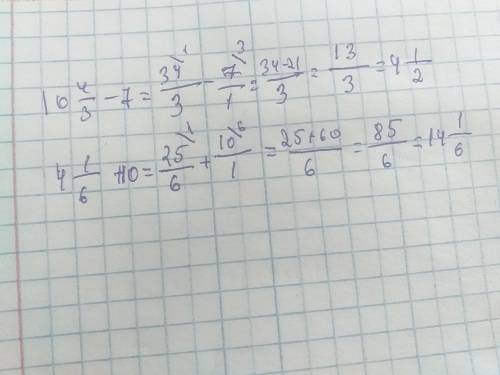 10 4/3 - 7 = 34^1/3 - 7^3/1 = 34-21/3 = 13/3 = 4 1/2
4 1/6 +10 = 25^1/6 + 10^6/1 = 25+60/6 = 85/6 = 14 1/6